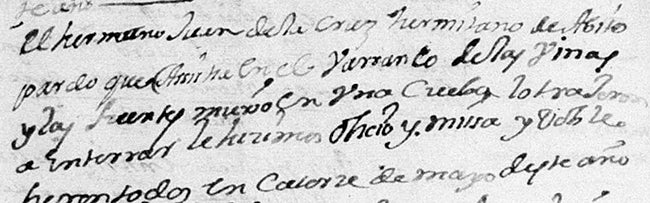 te año
el hermano Juen de la Cruz hermitano de Abito
pardo que asistia en el Varranco de las Vinas
y las fuentes murio en Vna Cueba lo traxeron
a enterrar le hizimos oficio y missa y doble
heron todos en Catorze de mayo deste año